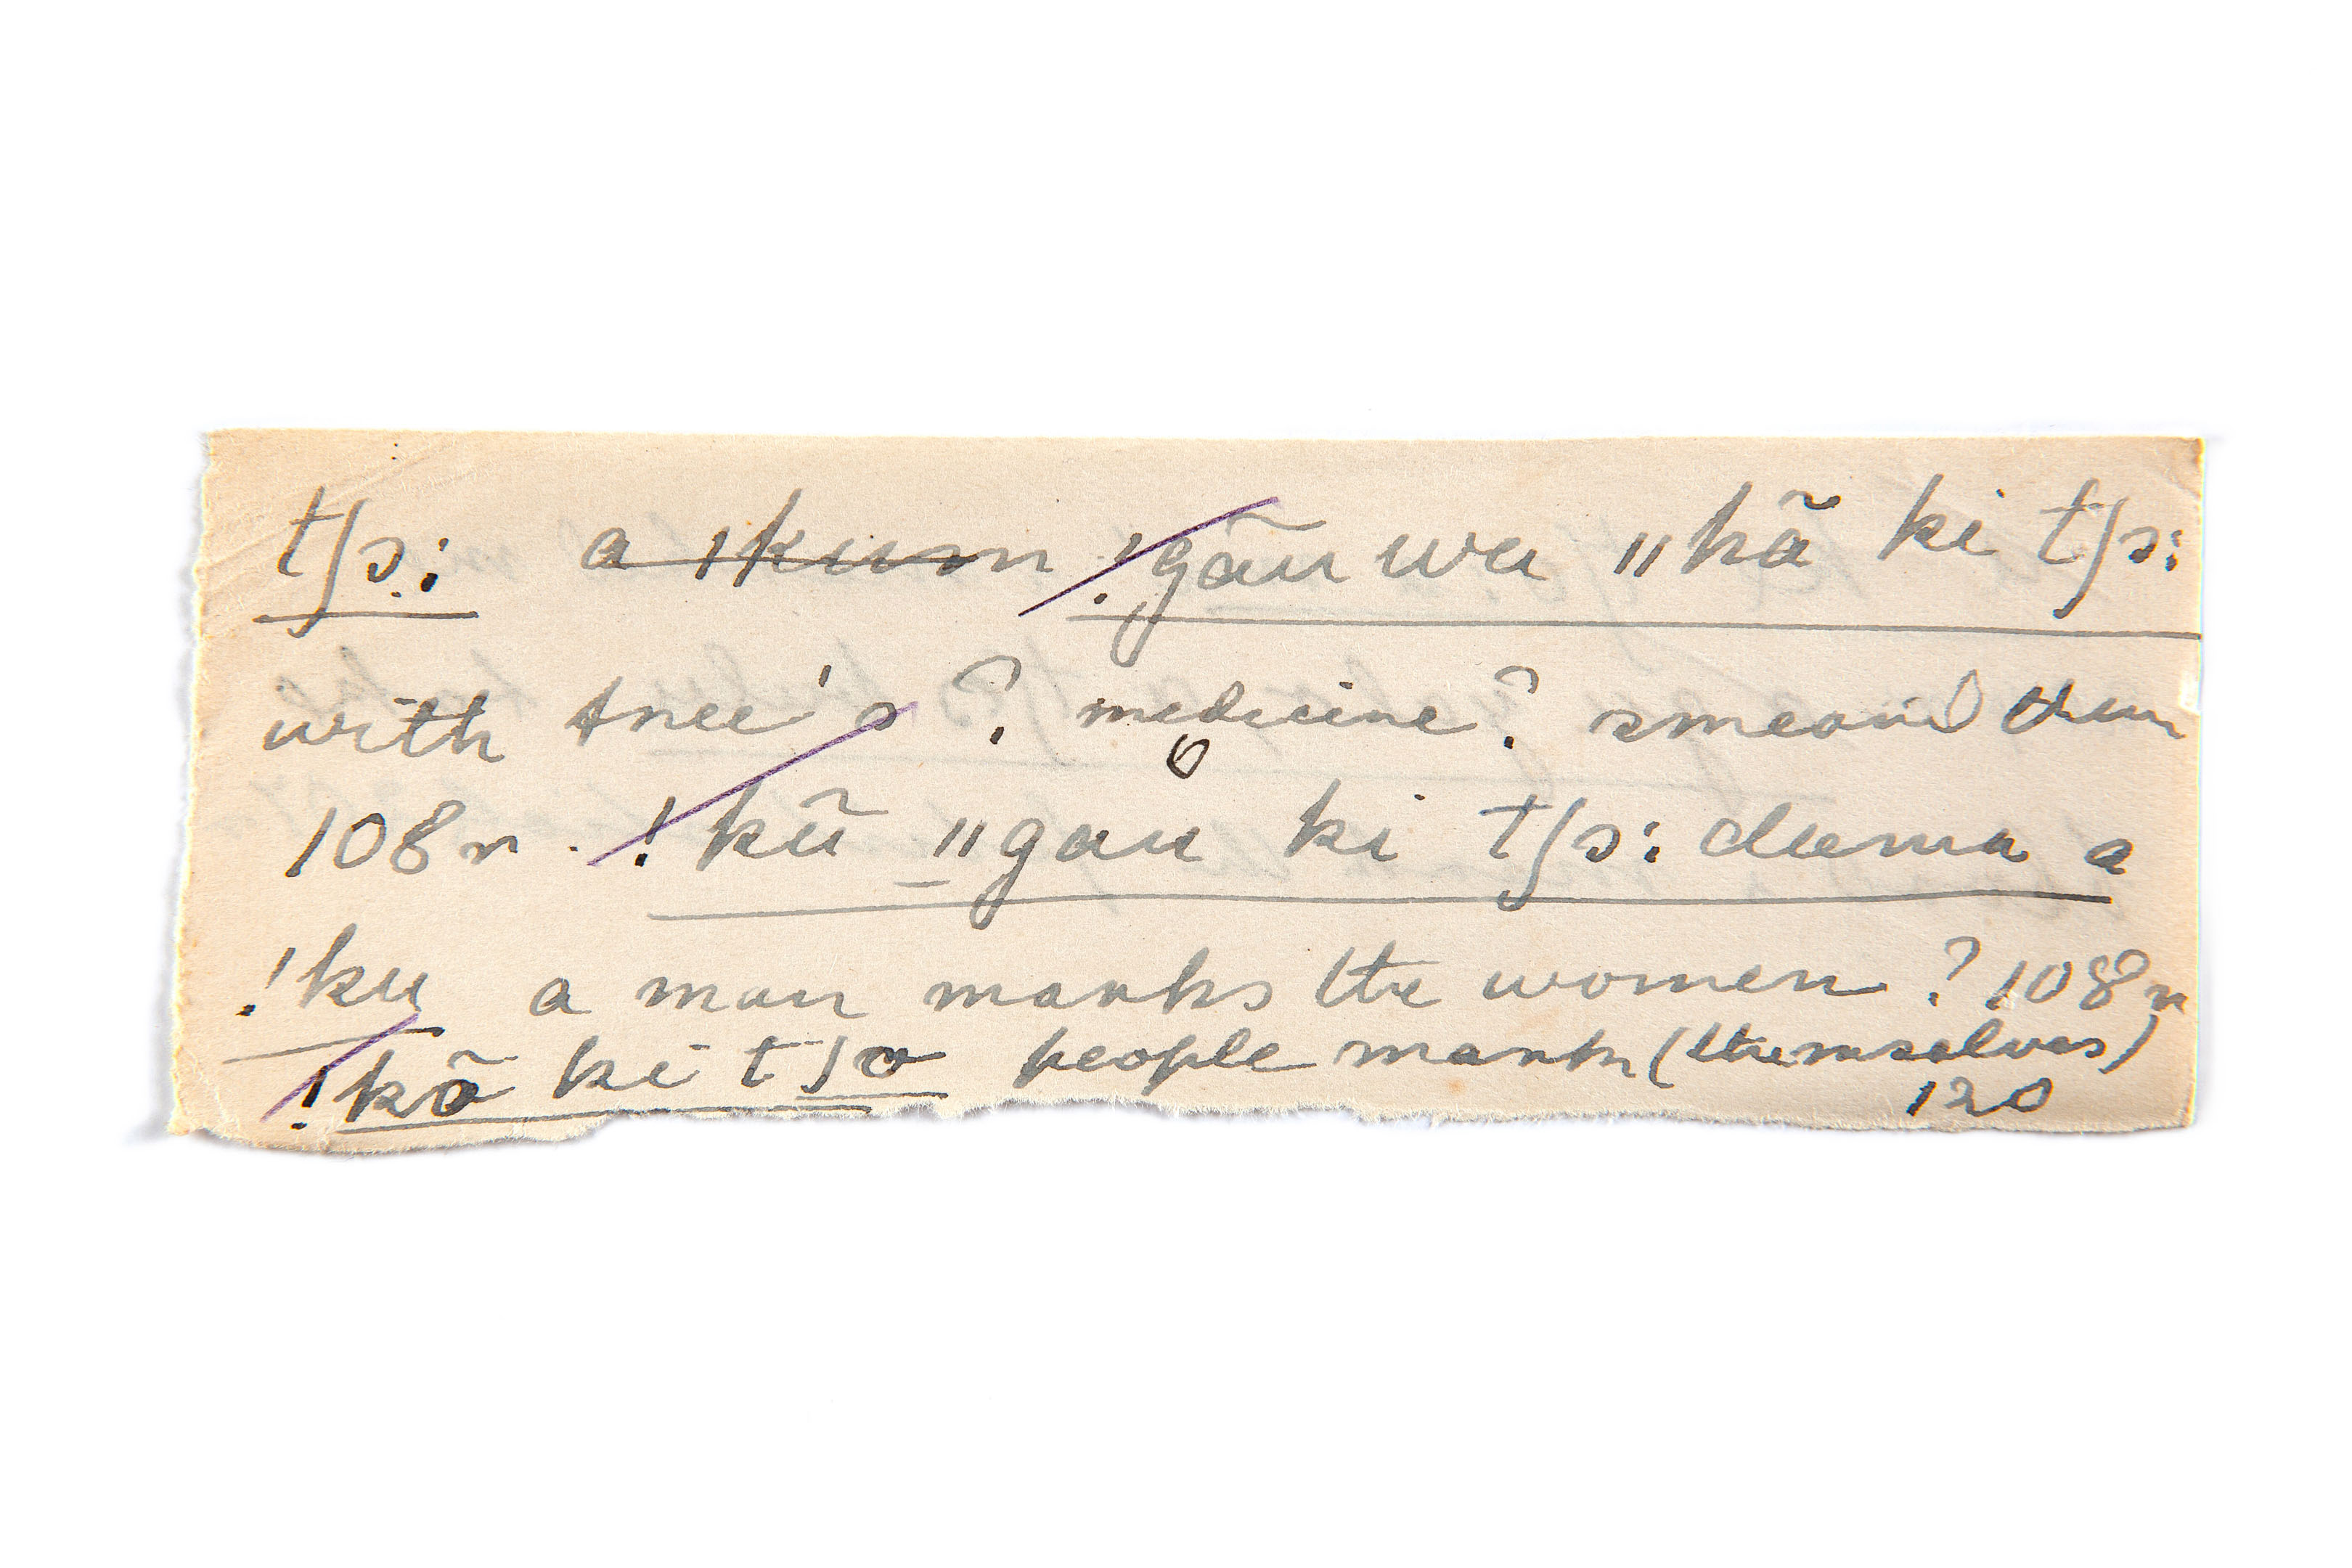 tʃɔ: a ǀkum !gãu wa ǁkã ki tʃɔ:
with tree's ? medicine ? smear
108r . !kũ ǁgau ki tʃɔ: duma a
!ku a man marks the women ? 108r
!kõ ki tʃo people mark (themselves)
120